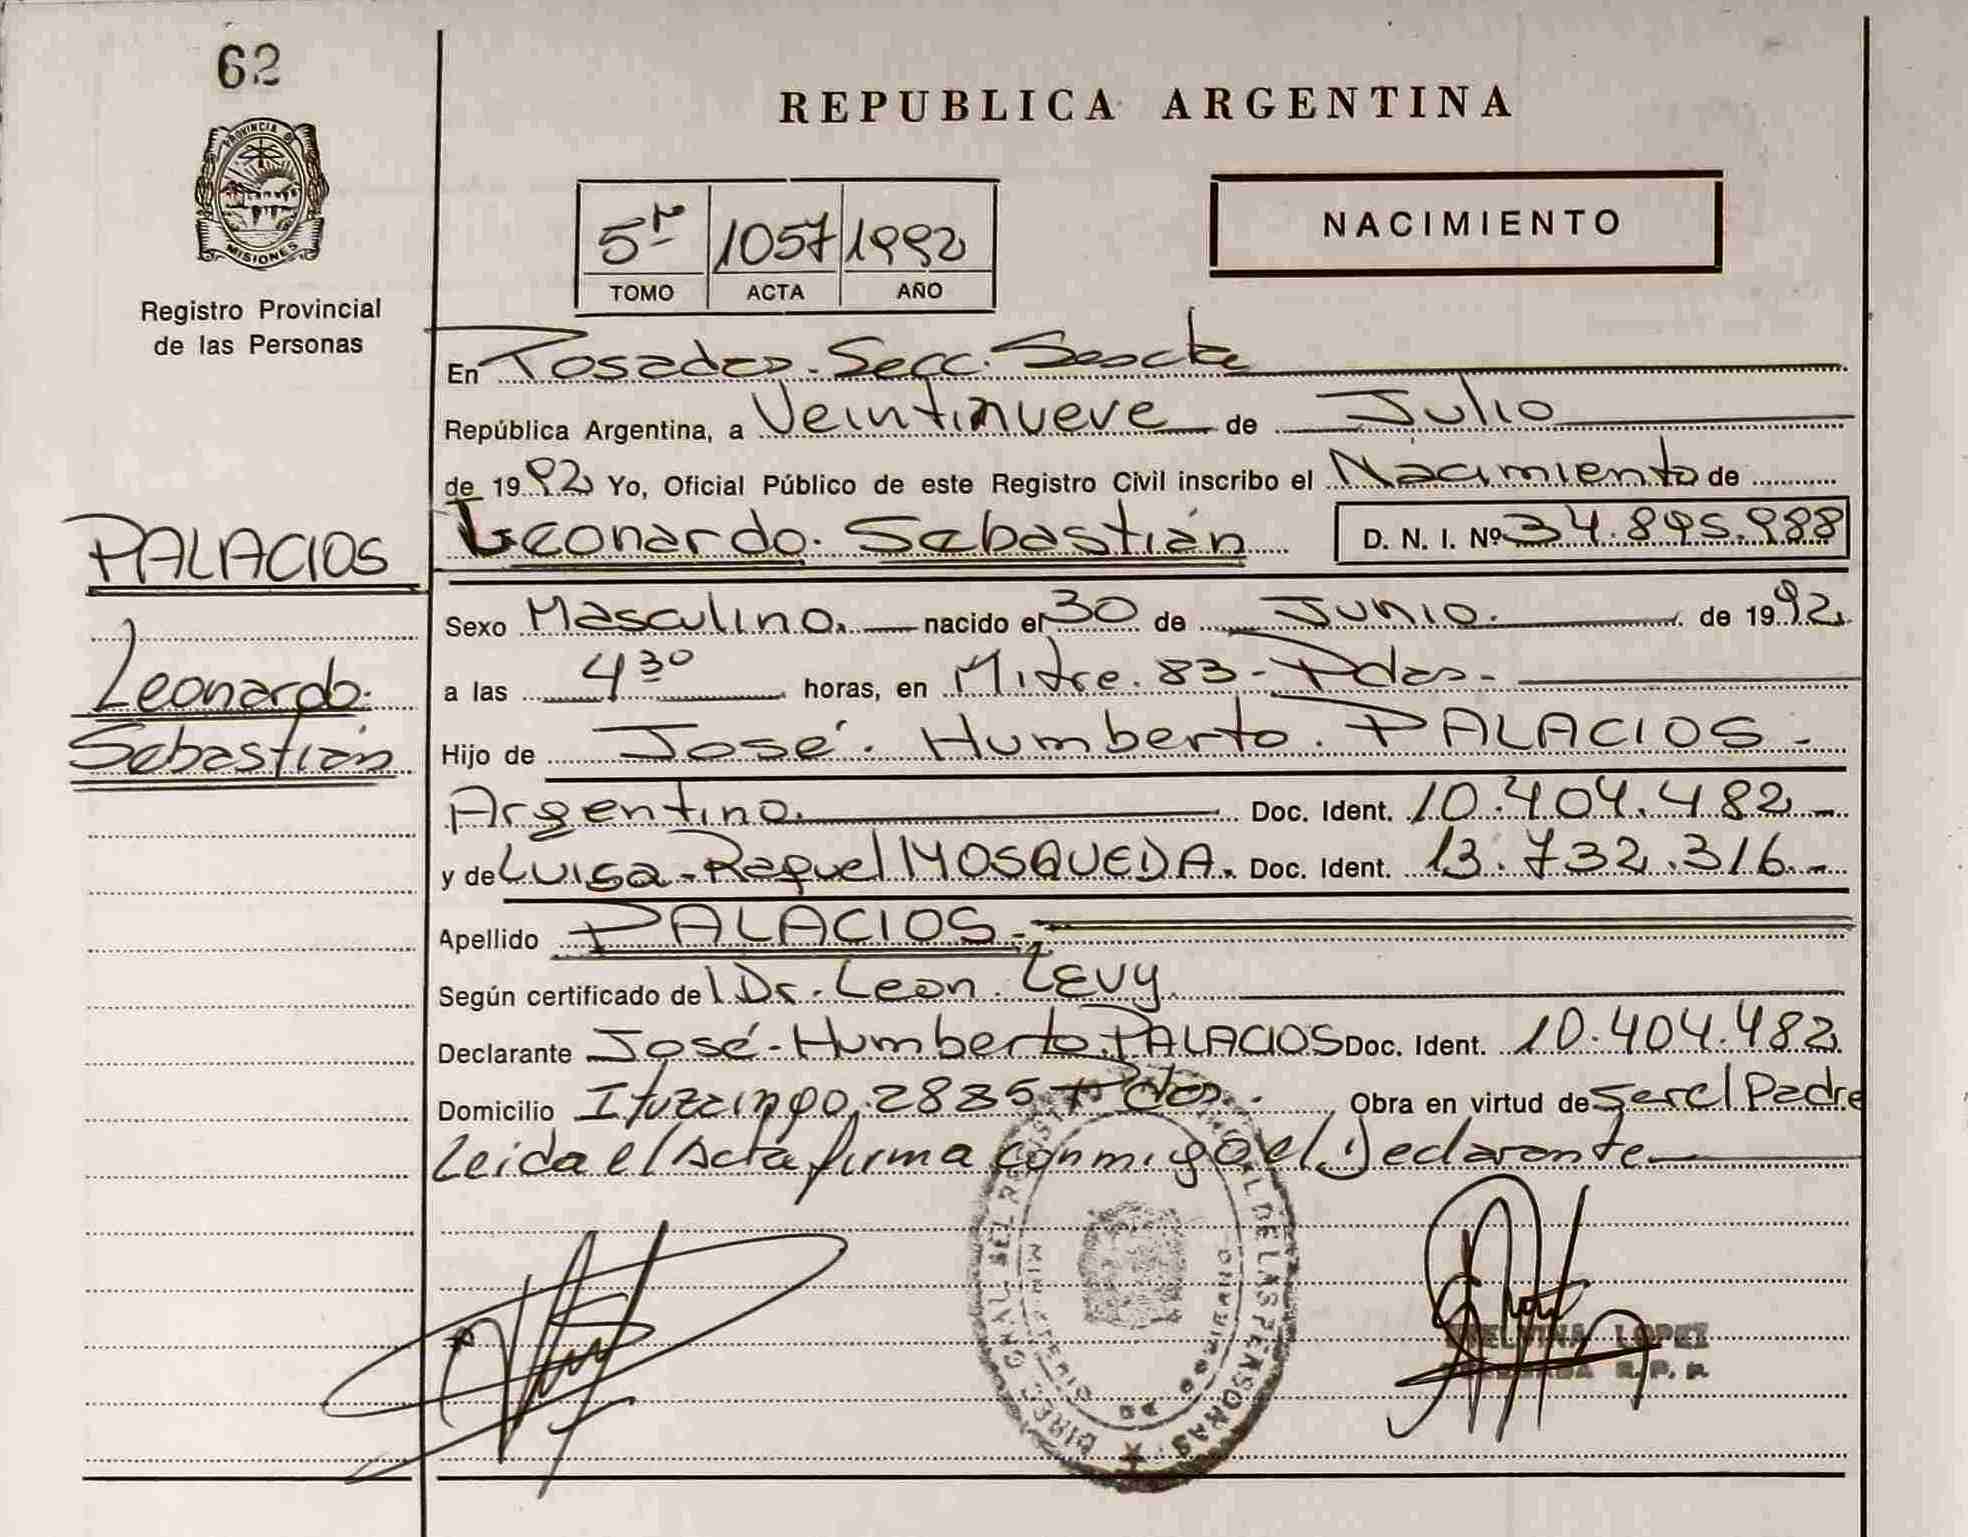 62
PROVINCIA DE
MISIONES
Registro Provincial
de las Personas
PALACIOS
Leonardo.
Sebastián
REPUBLICA ARGENTINA
5to 1057 1992
TOMO ACTA AÑO
NACIMIENTO
En Posadas. Secc. Sexta
República Argentina, a Veintinueve de Julio
de 1992 Yo, Oficial Público de este Registro Civil inscribo el Nacimiento de
Leonardo. Sebastián D. N. I. Nº 34.895.988
Sexo Masculino. nacido el 30 de Junio. de 1992.
a las 4 30 horas, en Mitre. 83 - Pdas. -
Hijo de José. Humberto. PALACIOS -
Argentino. Doc. Ident. 10.404.482 -
y de Luisa - Raquel MOSQUEDA. Doc. Ident. 13.732.316. -
Apellido PALACIOS. -
Según certificado del Dr. Leon Levy
Declarante José - Humberto. PALACIOS Doc. Ident. 10.404.482
Domicilio Ituzaingo. 2835 Pdas. Obra en virtud de ser el Padre
Leida el Acta firma conmigo el Declarante
DEL REGISTRO DE LAS PERSONAS
MINISTERIO DE GOBIERNO
LOPEZ
R. P. P.